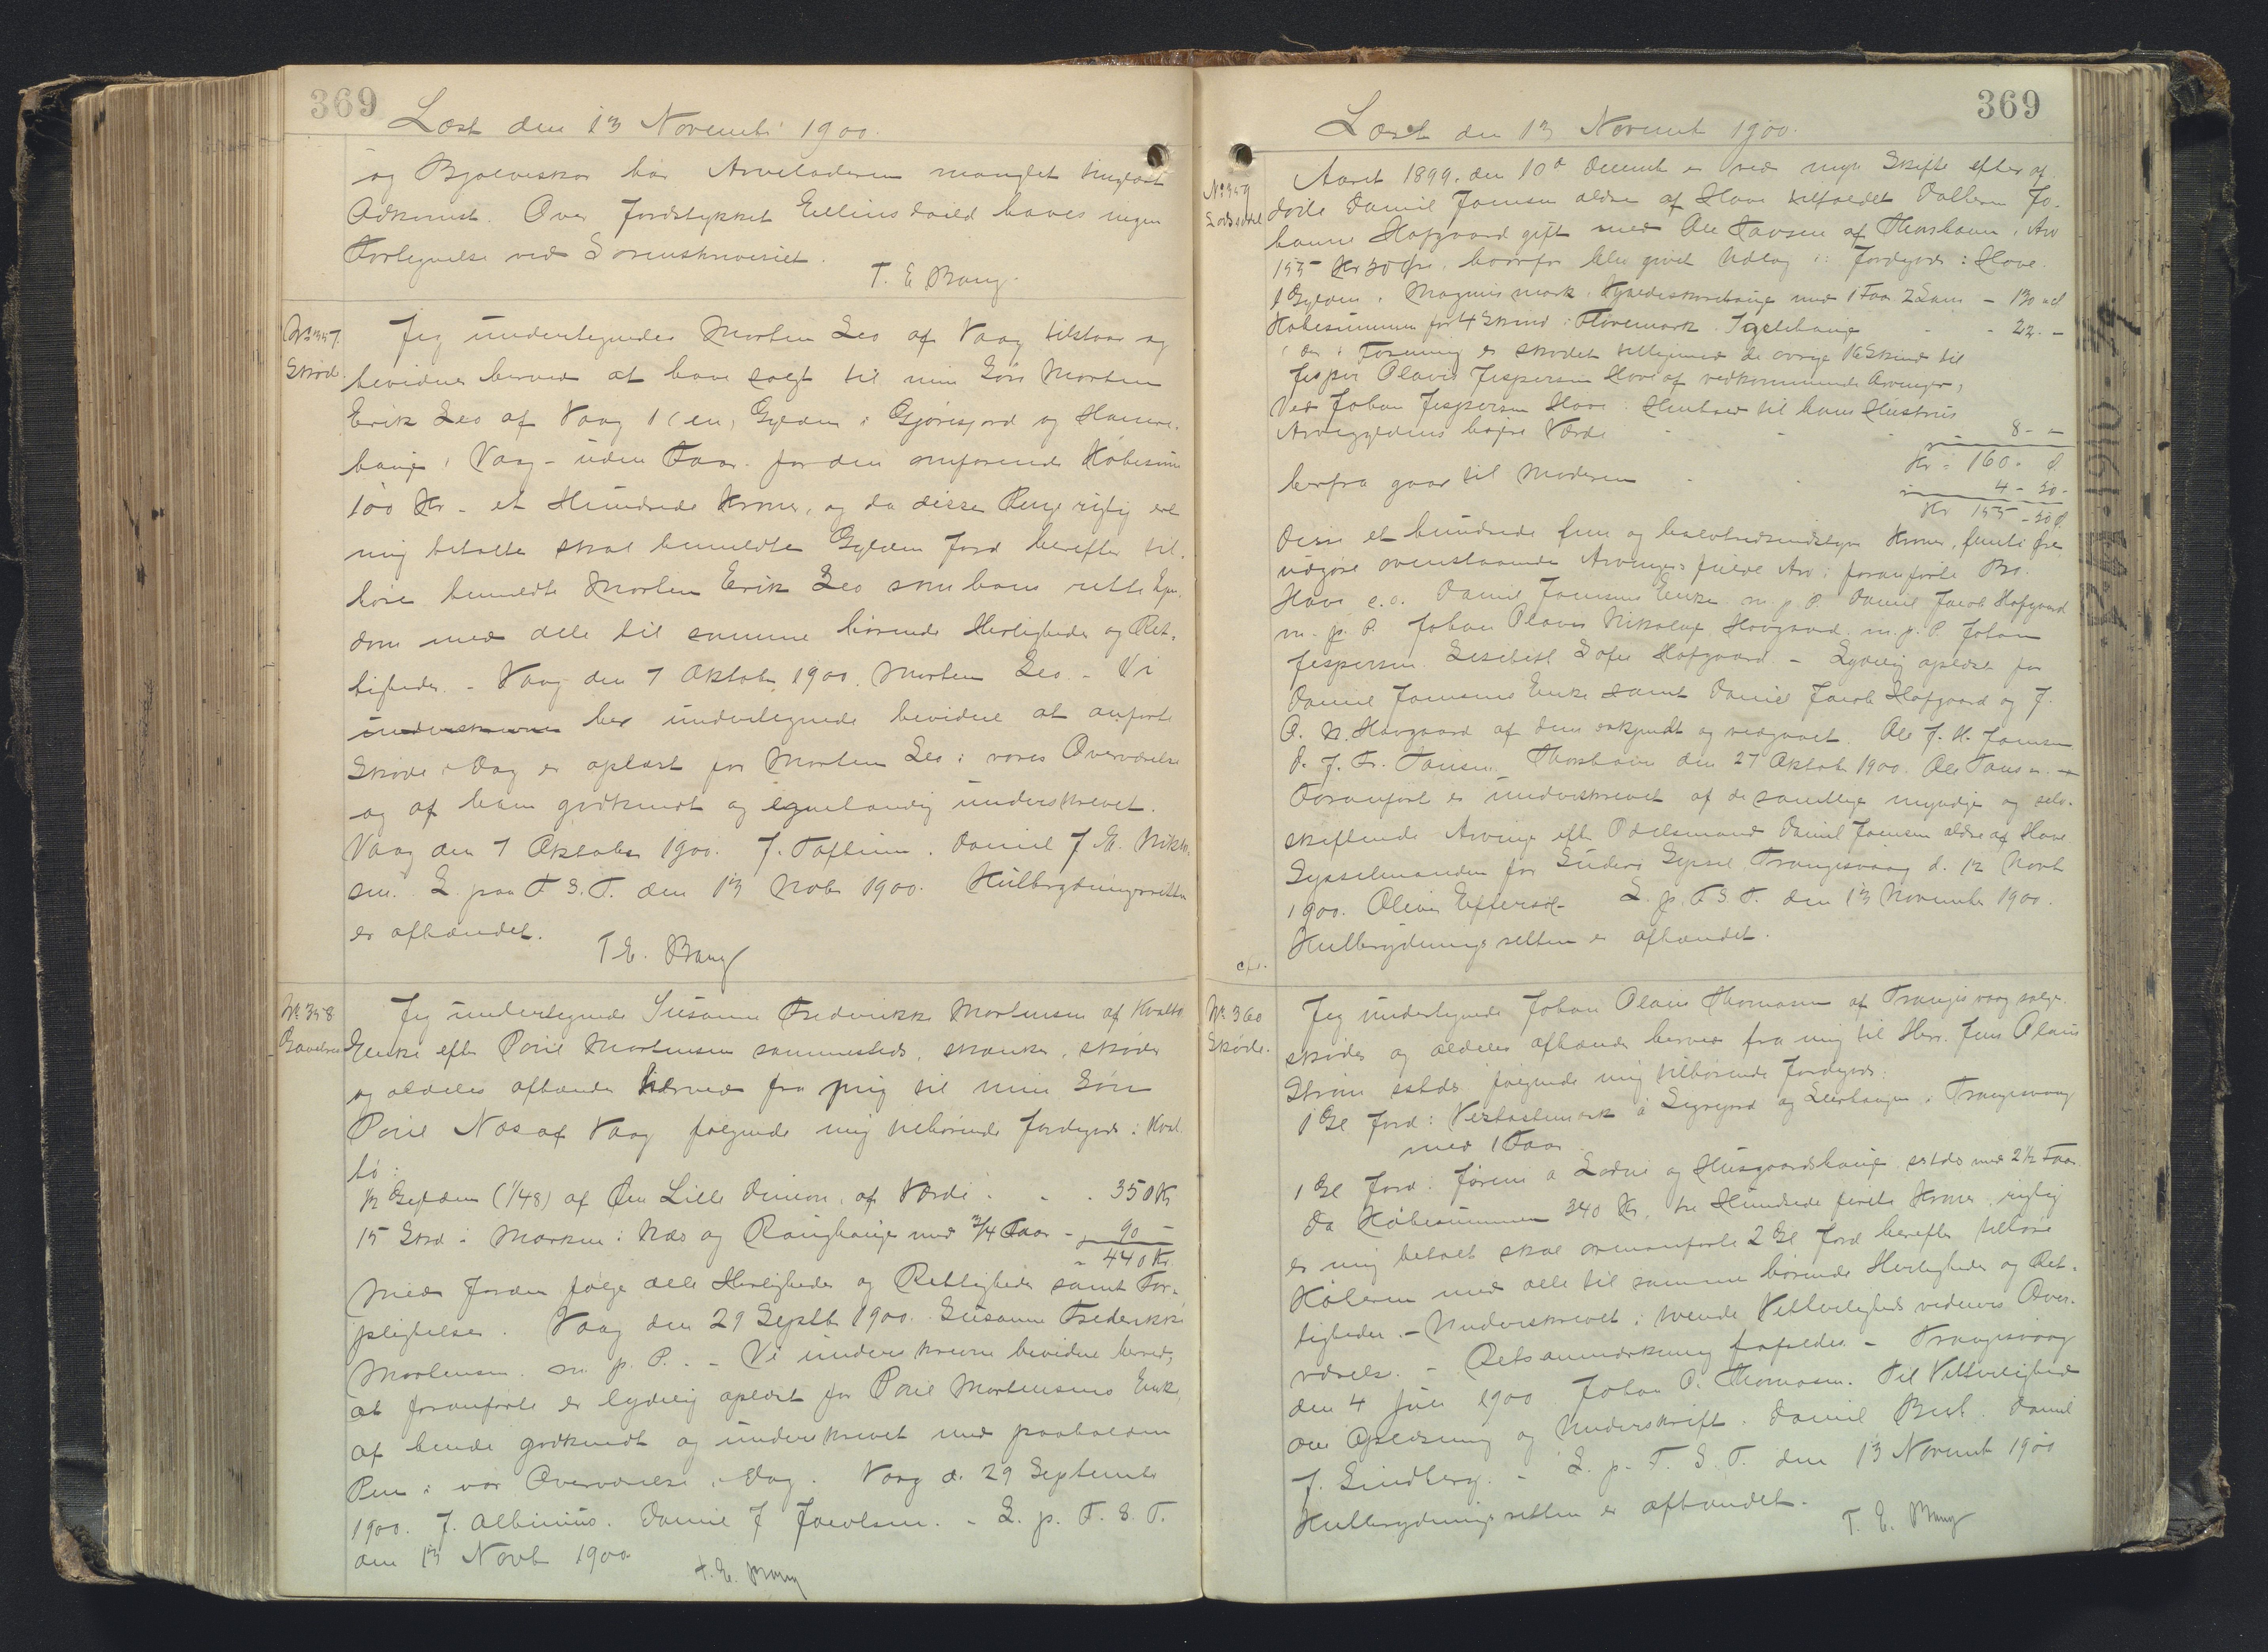 369
Læst den 13 Novemb: 1900.
og Bjælveskor har Arveladeren manglet tinglæst
Adkomst. Over Jordstykket Ellins haves ingen
Fortegnelse ved Sorenskriveriet.
T. E. Bang.
No 357.
Skøde.
Jeg undertegnede Morten Leo af Vaag tilstaar og
bevidner herved at have solgt til min Søn Morten
Erik Leo af Vaag 1 (en) Gylden i Gjøresjord og Hamre-
hauge i Vaag - uden Faar - for den omforenede Købesum
100 Kr - et Hundrede Kroner, og da disse Penge rigtig ere
mig betalte skal bemeldte Gylden Jord herefter til-
høre bemeldte Morten Erik Leo som hans rette Ejen-
dom med alle til samme hørende Herligheder og Ret-
tigheder. - Vaag den 7 Oktob 1900. Morten Leo. - Vi
underskrevne her undertegnede bevidne at anførte
Skøde i Dag er oplæst for Morten Leo i vores Overværelse
og af ham godkendt og egenhændig underskrevet.
Vaag den 7 Oktober 1900. J. Toftum. Daniel J. M. Nikla-
sen. L. paa F. S. T. den 13 Nobr 1900. Hulbrydningsretten
er afhændet.
T. E. Bang
No 358
Gavebrev
Jeg undertegnede Susanne Frederikke Mortensen af Kvalbø
Enke efter Poul Mortensen sammesteds, skænker, skøder
og aldeles afhænder herved fra mig til min Søn
Poul Næs af Vaag følgende mig tilhørende Jordgods i Kval-
bø:
1/2 Gylden (1/48) af Øen Lille Dimon, af Værdi - - - 350 Kr
15 Skd i Marken: Næs og Ranghauge med 3/4 Faar - 90 -
- 440 Kr.
Med Jorden følge alle Herligheder og Rettigheder samt For-
pligtelser. Vaag den 29 Septb 1900. Susanne Frederikke
Mortensen. m. p. P. - Vi underskrevne bevidne herved,
at foranførte er lydelig oplæst for Poul Mortensens Enke,
af hende godkendt og underskrevet med paaholden
Pen i vor Overværelse i Dag. Vaag d. 29 Septemb
1900. J. Albinus. Daniel J Jacobsen. - L. p. F. S. T.
den 13 Novb 1900.
T. E. Bang
369
Læst den 13 Novemb 1900.
No 359
Lodseddel
Aaret 1899. den 10d Decemb er ved mgl. Skifte efter af-
døde Daniel Joensen ældre af Hove tilfaldet Datteren Jo-
hanne Hofgaard gift med Ole Hansen af Thorshavn i Arv
155 Kr 50 Øre, hvorfor blev givet Udlæg i: Jordgods i Hove.
1 Gylden i Magnusmark med 1 Faar 2 Lam - 130 -
Købesummen for 4 Skind i Hovemark - - 22. -
er skødet tilligemed de øvrige 16 Skind til
Jesper Olavis Jespersen Hove af vedkommende Arvinger,
Ved Johan Jespersen Hove: Henhold til hans Hustrus
Arvegyldens højere Værdi - - - 8 - -
Kr = 160 -
herfra gaar til Moderen - - 4 - 50 -
Kr 155 - 50
Disse et hundrede fem og halvtredsindstyve Kroner, femti Øre
udgøre ovenstaaende Arvings fulde Arv i foranførte Bo.
Hove e.o. Daniel Joensens Enke m. p. P. Daniel Jacob Hofgaard
m. p. P. Johan Olavus Nikolaj Hovgaard. m. p. P. Johan
Jespersen. Lisebeth Sofie Hofgaard - Lydelig oplæst for
Daniel Joensens Enke samt Daniel Jacob Hofgaard og J.
O. N. Hovgaard af dem erkjendt og vedgaaet. Ole J. H. Joensen
D. J. Fr. Hansen. Thorshavn den 27 Oktob 1900. Ole Hansen. -
Foranført er underskrevet af de samtlige myndige og selv-
skiftende Arvinger efter Odelsmand Daniel Joensen ældre af Hove
Sysselmanden for Suderø Syssel Trangisvaag d. 12 Novb
1900. Oliver Effersøe L. p. F. S. T. den 13 November 1900.
Hulbrydningsretten er afhændet.
No 360
Skøde.
Jeg undertegnede Johan Olaus Thomasen af Trangisvaag sælger,
skøder og aldeles afhænder herved fra mig til Herr. Jens Olaus
Strøm sstds følgende mig tilhørende Jordgods:
1 Gl Jord: Vestaslemark á Sygrejord og Leerhaugen i Trangisvaag
med 1 Faar
1 Gl Jord: Jørens a Ladne og Husgaardshauge sstds med 2 1/2 Faar.
Da Købesummen 340 Kr, tre Hundrede firti Kroner rigtig
er mig betalt skal ovenanførte 2 Gl Jord herefter tilhøre
Køberen med alle til samme hørende Herligheder og Ret-
tigheder. - Underskrevet i tvende Vitterligheds vidners Over-
værelse. - Retsanmærkning frafaldes. - Trangisvaag
den 4 Juli 1900. Johan O. Thomasen. Til Vitterlighed
om Oplæsning og Underskrift. Daniel Daniel
J. Lindberg. - L. p. F. S. T. den 13 Novemb 1900
Hulbrydningsretten er afhændet.
T. E. Bang